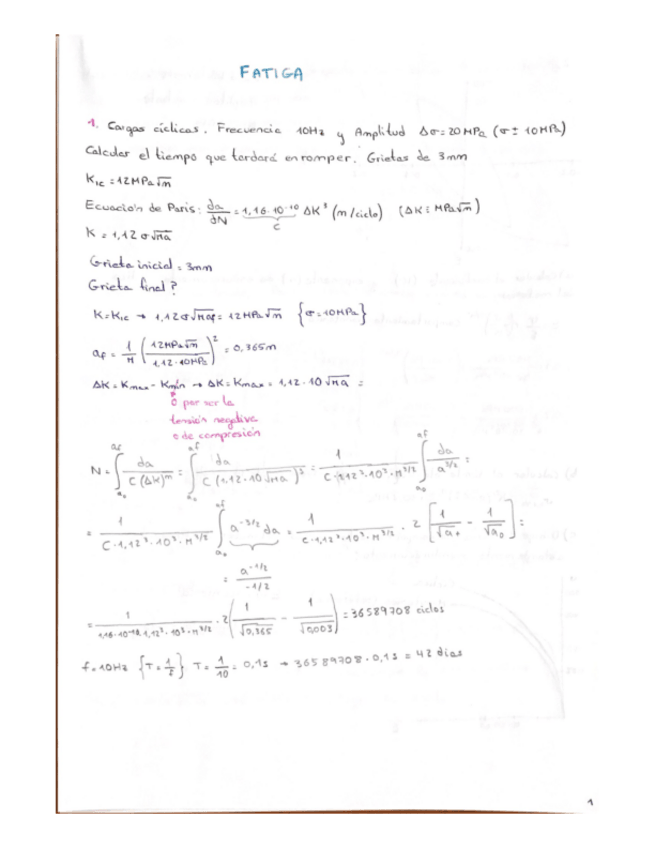 FATIGA
1. Cargas cíclicas. Frecuencia 10Hz y Amplitud Δσ=20MPa (σ± 10MPa)
Calcular el tiempo que tardará en romper. Grietas de 3mm
K_IC = 12MPa√m
Ecuación de Paris: da/dN = 1,16·10^-10 ΔK^3 (m/ciclo) (ΔK: MPa√m)
C
K = 1,12 σ√πa
Grieta inicial = 3mm
Grieta final?
K=K_IC → 1,12σ√πaf = 12MPa√m {σ=10MPa}
af = 1/π (12MPa√m / 1,12·10MPa)^2 = 0,365m
ΔK = Kmax - Kmin → ΔK = Kmax = 1,12·10√πa =
0 por ser la
tensión negativa
o de compresión
N = ∫_{a0}^{af} da / C(ΔK)^m = ∫_{a0}^{af} da / C(1,12·10√πa)^3 = 1 / C·1,12^3·10^3·π^3/2 ∫_{a0}^{af} da / a^3/2 =
= 1 / C·1,12^3·10^3·π^3/2 ∫_{a0}^{af} a^-3/2 da = 1 / C·1,12^3·10^3·π^3/2 · 2 [1/√a0 - 1/√a0] =
= a^-1/2 / -1/2
= 1 / 1,16·10^-10·1,12^3·10^3·π^3/2 · 2 (1/√0,365 - 1/√0,003) = 36589708 ciclos
f=10Hz {T=1/f} T = 1/10 = 0,1s → 36589708·0,1s = 42 días
1